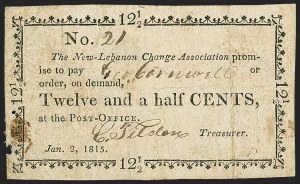 12½ 12½
No. 21
The New-Lebanon Change Association prom-
ise to pay or
order, on demand,
Twelve and a half CENTS,
at the Post-Office.
Tilden Treasurer.
Jan. 2, 1815.
12½ 12½
12½ 12½